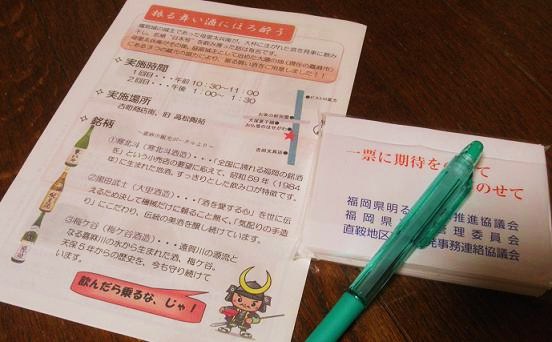 振る舞い酒にほろ酔う
✧ 実施時間
1回目・・・午前10：30～11：00
2回目・・・午後 1：00～ 1：30
✧ 実施場所
古町商店街、旧 高松陶苑
✧ 銘柄
①寒北斗（寒北斗酒造）・・・「全国に誇れる福岡の銘酒
を」という小売店の要望に応えて、昭和59年（1984
年）に生まれた地酒。すっきりとした飲み口が特徴です。
②黒田武士（大里酒造）・・・「酒を愛する心」を世に伝
えるため決して機械だけに頼ること無く、「気配りの手造
り」にこだわり、伝統の美酒を醸し続けています。
③梅ケ谷（梅ケ谷酒造）・・・遠賀川の源流と
なる嘉麻川の水から生まれた酒、梅ケ谷。
天保5年からの歴史を、今も守り続けて
います。
飲んだら乗るな、じゃ！
一票に期待を て
のせて
福岡県明る 推進協議会
福岡県 管理委員会
直鞍地区 発事務連絡協議会